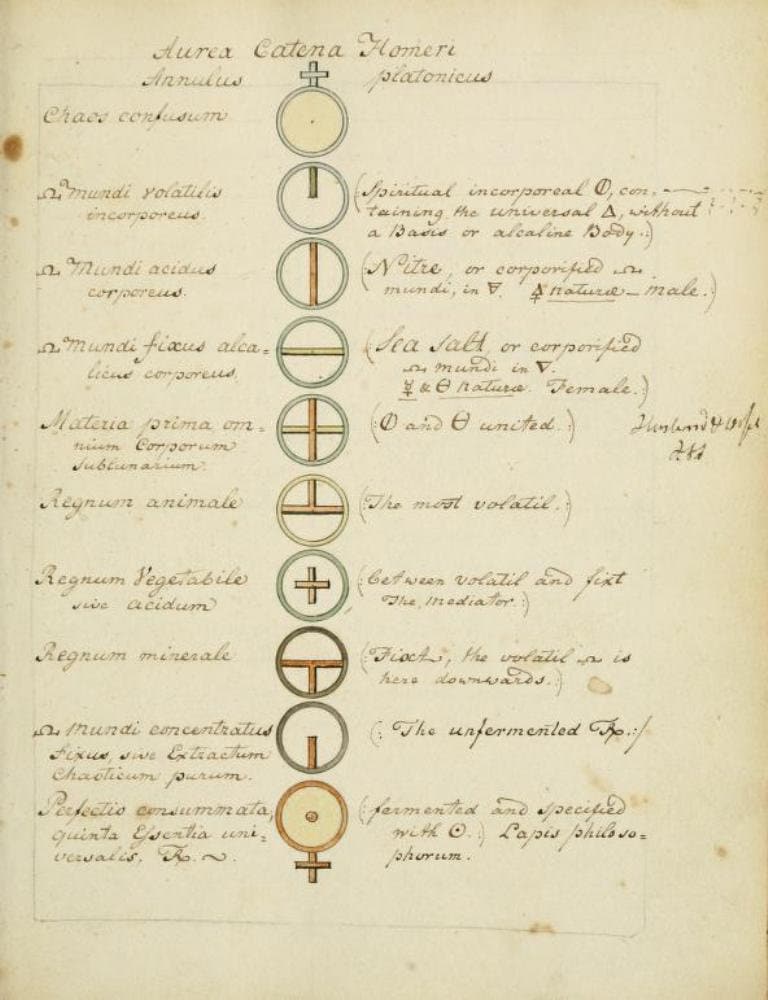 Aurea Catena Homeri
Annulus platonicus
Chaos confusum
♎ Mundi volatilis
incorporeus.
(: Spiritual incorporeal 🜕, con-
taining the universal △, without
a Basis or alcaline Body. :)
♎ Mundi acidus
corporeus.
(: Nitre, or corporified ♎
mundi, in 🜃. 🜍 naturæ – male. :)
♎ Mundi fixus alca=
licus corporeus.
(: Sea Salt, or corporified
♎ mundi in 🜃.
☿ & 🜔 naturæ. Female. :)
Materia prima om=
nium Corporum
sublunarium.
(: 🜕 and 🜔 united. :)
Husband & Wife
Regnum animale
(: The most volatil. :)
Regnum Vegetabile
sive acidum
(: between volatil and fixt
The mediator. :)
Regnum minerale
(: Fixt, the volatil ♎ is
here downwards. :)
♎ Mundi concentratus
Fixus, sive Extractum
Chaoticum purum.
(: The unfermented 🜋. :)
Perfectio consummata,
quinta Essentia uni=
versalis.
(: fermented and specified
with ☉. :) Lapis philoso=
phorum.